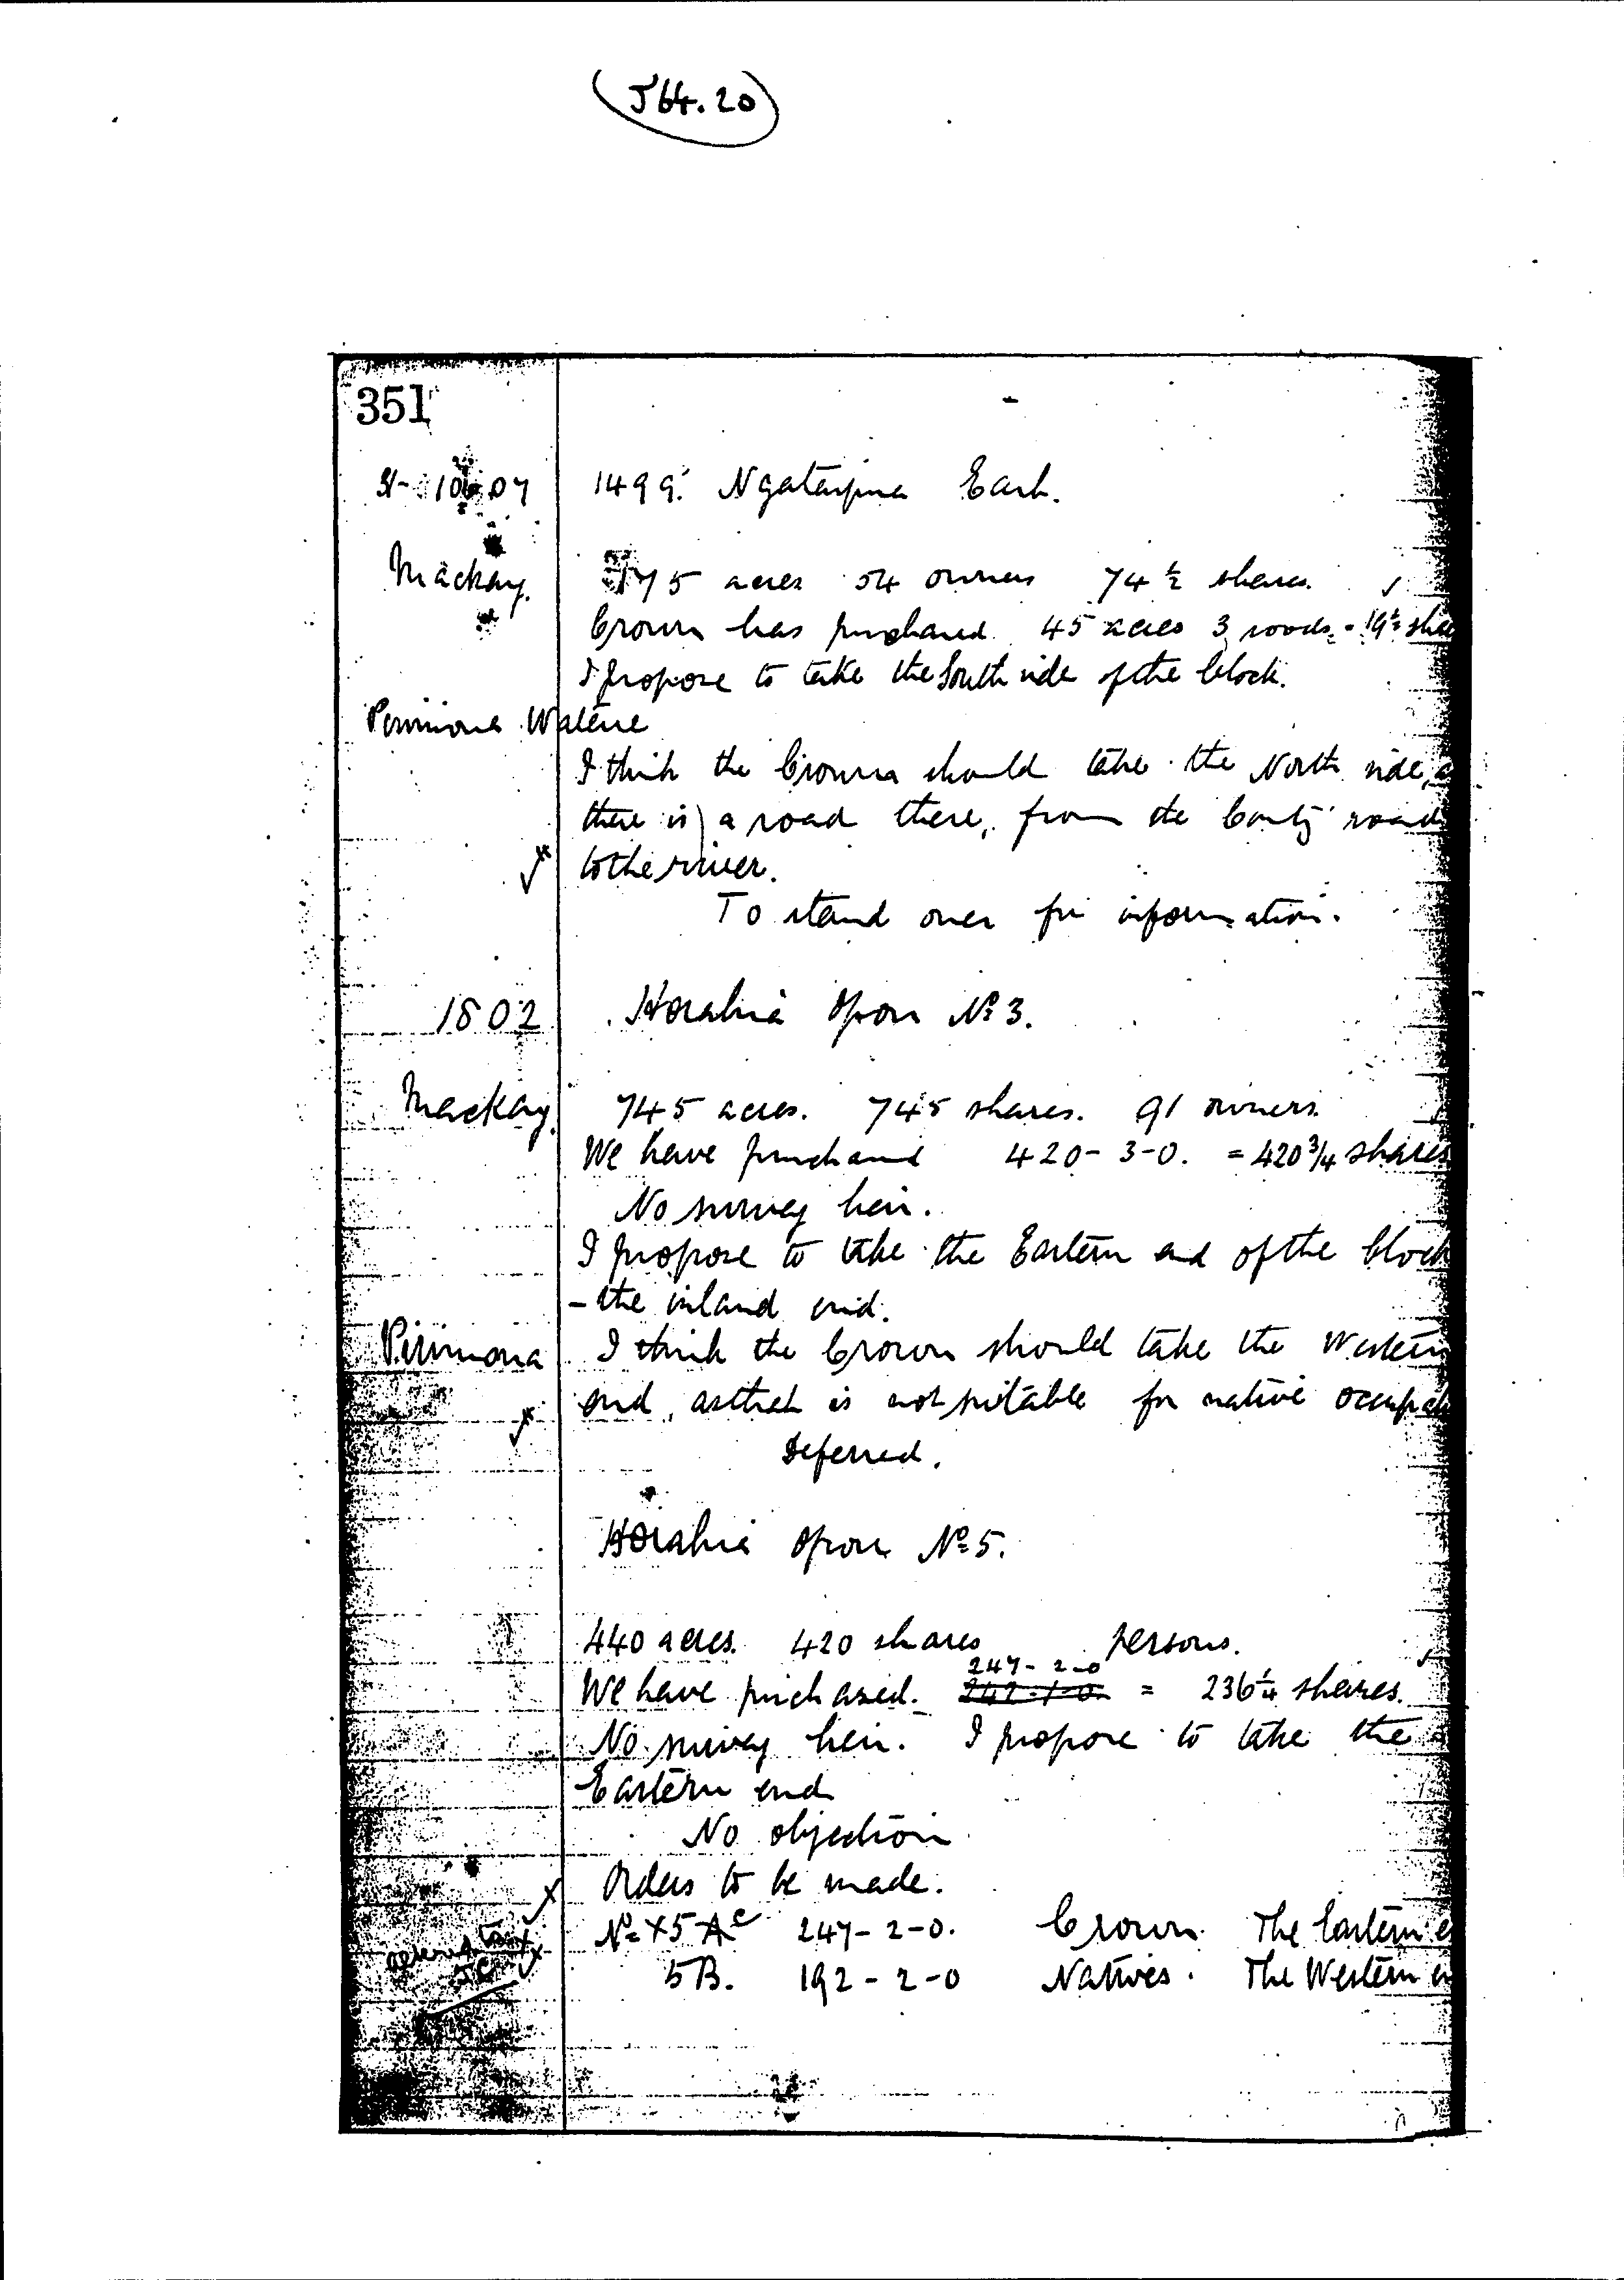 J64.20
351
1499. Ngataipua East.
Mackay. 175 acres 54 owners 74½ shares.
Crown has purchased 45 acres 3 roods = 19½
I propose to take the South side of the block.
Pirimona Watene
I think the Crown should take the North side,
there is a road there, from the County road
to the river.
To stand over for information.
1502 Horahia Opou No 3.
Mackay 745 acres. 745 shares. 91 owners.
We have purchased 420-3-0. = 420¾ shares
No survey lien.
I propose to take the Eastern end of the block
- the inland end.
Pirimona I think the Crown should take the Western
end, as that is not suitable for native
Deferred.
Horahia Opou No 5.
440 acres. 420 shares persons.
247-2-0
We have purchased. 242-1-0 = 236¼ shares.
No survey lien. I propose to take the
Eastern end
No objection
Orders to be made.
No 5A 247-2-0. Crown. The Eastern
5B. 192-2-0 Natives. The Western